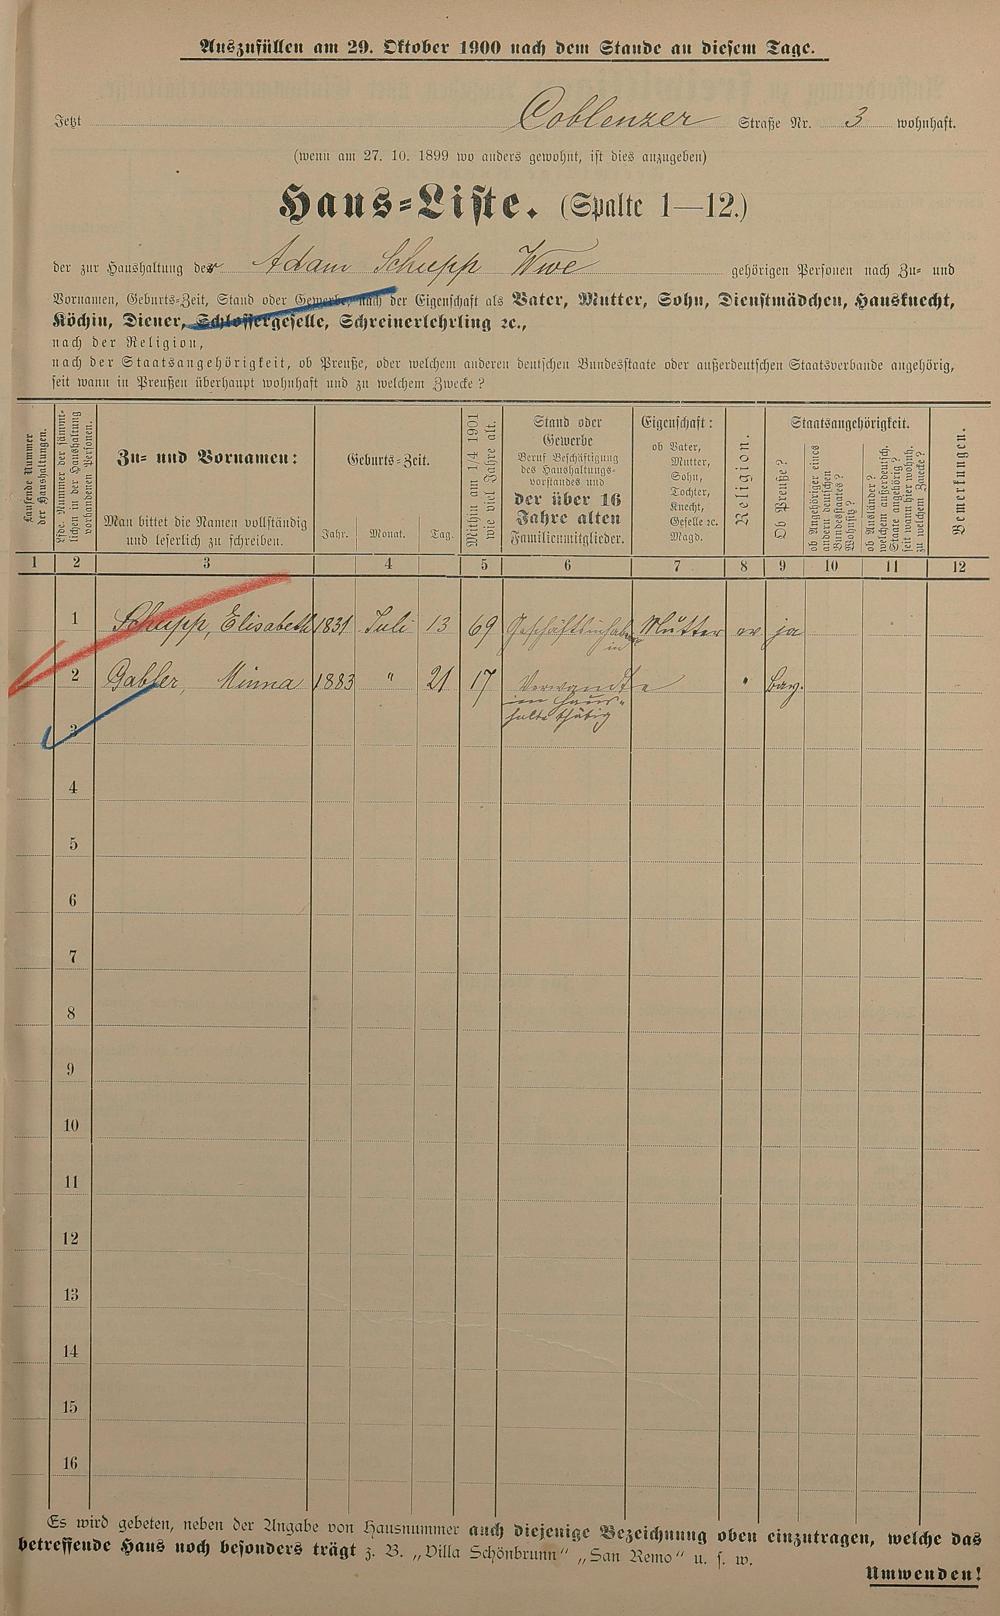 Auszufüllen am 29. Oktober 1900 nach dem Stande an diesem Tage.
Jetzt Coblenzer Straße Nr. 3 wohnhaft.
(wenn am 27. 10. 1899 wo anders gewohnt, ist dies anzugeben)
Haus-Liste. (Spalte 1—12.)
der zur Haushaltung der Adam Schupp Wwe gehörigen Personen nach Zu- und
Vornamen, Geburts-Zeit, Stand oder Gewerbe, nach der Eigenschaft als Vater, Mutter, Sohn, Dienstmädchen, Hausknecht,
Köchin, Diener, Schlossergeselle, Schreinerlehrling ꝛc.,
nach der Religion,
nach der Staatsangehörigkeit, ob Preuße, oder welchem anderen deutschen Bundesstaate oder außerdeutschen Staatsverbande angehörig,
seit wann in Preußen überhaupt wohnhaft und zu welchem Zwecke?
Laufende Nummer
der Haushaltungen.
Lfde. Nummer der sämmt-
lichen in der Haushaltung
vorhandenen Personen.
Zu- und Vornamen:
Man bittet die Namen vollständig
und leserlich zu schreiben.
Geburts-Zeit.
Jahr. Monat. Tag.
Mithin am 1/4 1901
wie viel Jahre alt.
Stand oder
Gewerbe
Beruf Beschäftigung
des Haushaltungs-
vorstandes und
der über 16
Jahre alten
Familienmitglieder.
Eigenschaft:
ob Vater,
Mutter,
Sohn,
Tochter,
Knecht,
Geselle ꝛc.
Magd.
Religion.
Staatsangehörigkeit.
Ob Preuße?
ob Angehöriger eines
andern deutschen
Bundesstaates?
Wohnsitz?
ob Ausländer?
welchem außerdeutsch.
Staate angehörig?
seit wann hier wohnh.
zu welchem Zwecke?
Bemerkungen.
1 2 3 4 5 6 7 8 9 10 11 12
1 Schupp, Elisabeth 1831 Juli 13 69 Geschäftsinhaber Mutter ev ja
in
2 Gabler, Minna 1883 " 21 17 Verwandte " bay.
im Haus-
halte thätig
3
4
5
6
7
8
9
10
11
12
13
14
15
16
Es wird gebeten, neben der Angabe von Hausnummer auch diejenige Bezeichnung oben einzutragen, welche das
betreffende Haus noch besonders trägt z. B. „Villa Schönbrunn" „San Remo" u. s. w.
Umwenden!